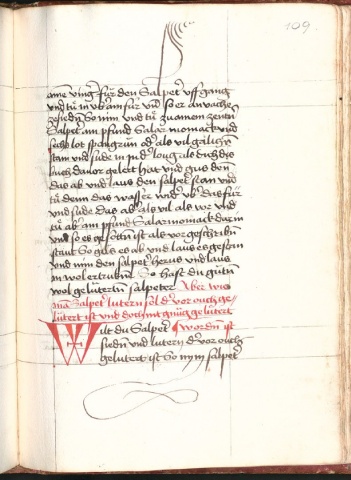 109
ainē vingʼ für den Salpetʼ uff gang
und tů in vber am für vnd so er an vachet
zesiedn So nim vnd tů zu ainen zentn
Salpetʼ ain pfund Salarmoniack und
sechs lot spangrün odʼ als vil galiczn
stain und siude in in dʼ loug als dich dis
buch davor gelert hat und gus den
das ab und laus den salpetʼ stan und
tů denn das wasser widʼ vbʼ das für
und siude das abʼ als vil als vor und
tů abʼ ain pfund Salarmoniack dar in
und so es gesotten ist als vor geschribn
staut So güs es ab und laus es gestan
und nim den salpetʼ herus und laus
in wol ertrukn So hast du gůtn
wol gelütertn salpeter Aber wie
man Salpetʼ lutern sol dʼ vor ouch ge-
lütert ist und doch nit gnůg gelütert
Wilt du Salpetʼ wordn ist
siedn und lutern dʼ vor ouch
gelutert ist So nym salpetʼ